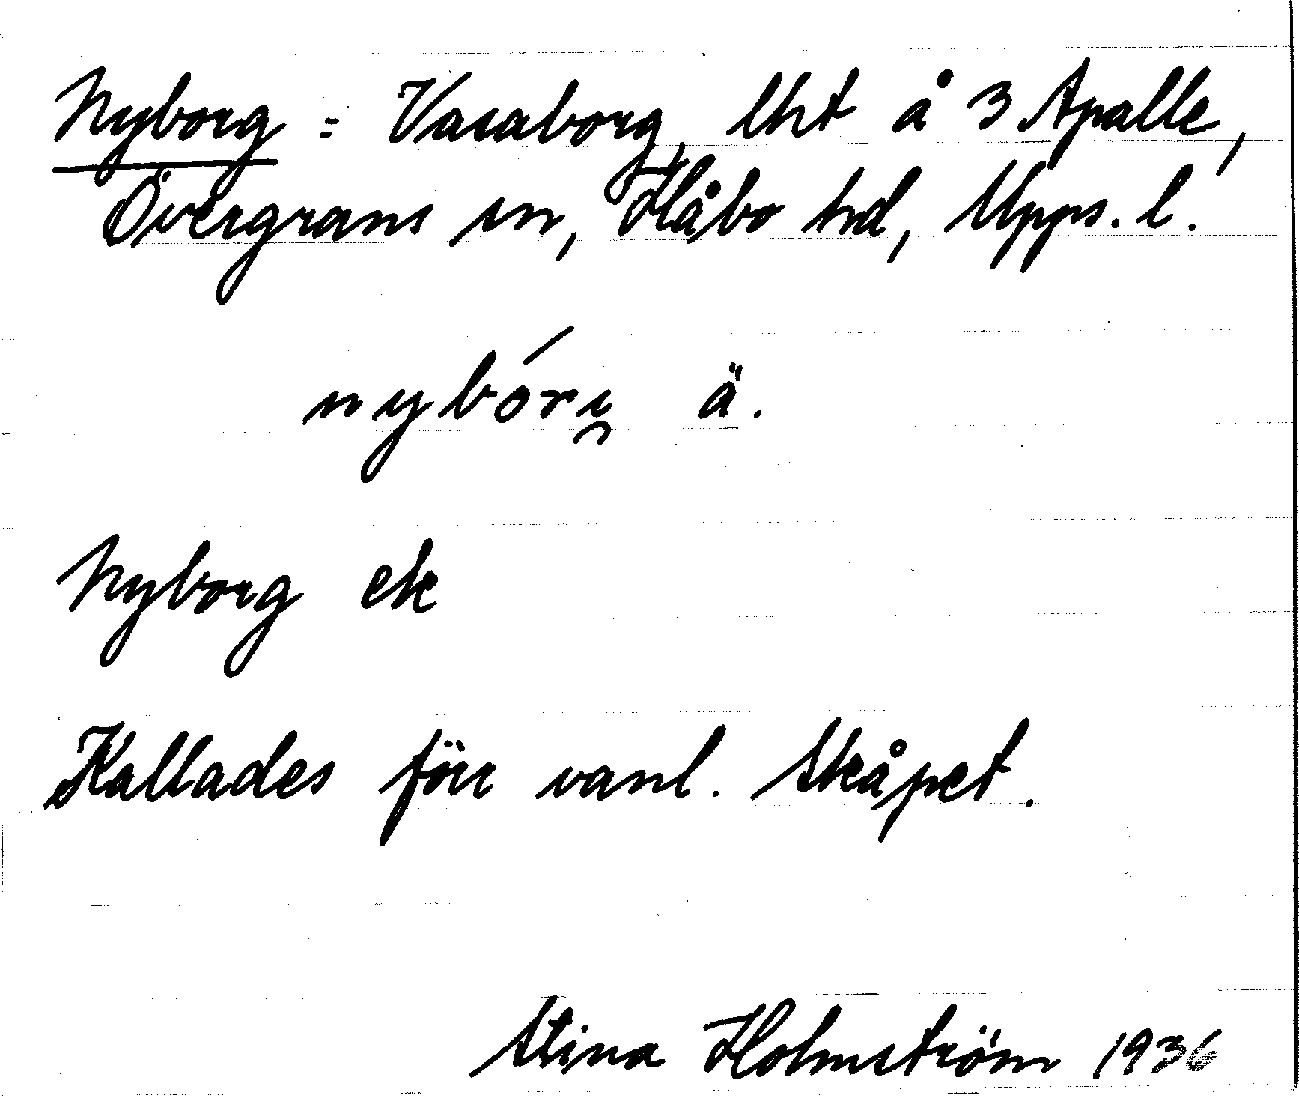 Nyborg = Vasaborg, lht å 3 Apalle,
Övergrans sn, Håbo hd, Upps. l.
nybóri̯ ä.
Nyborg ek
Kallades förr vanl. Skåpet.
Stina Holmström 1936